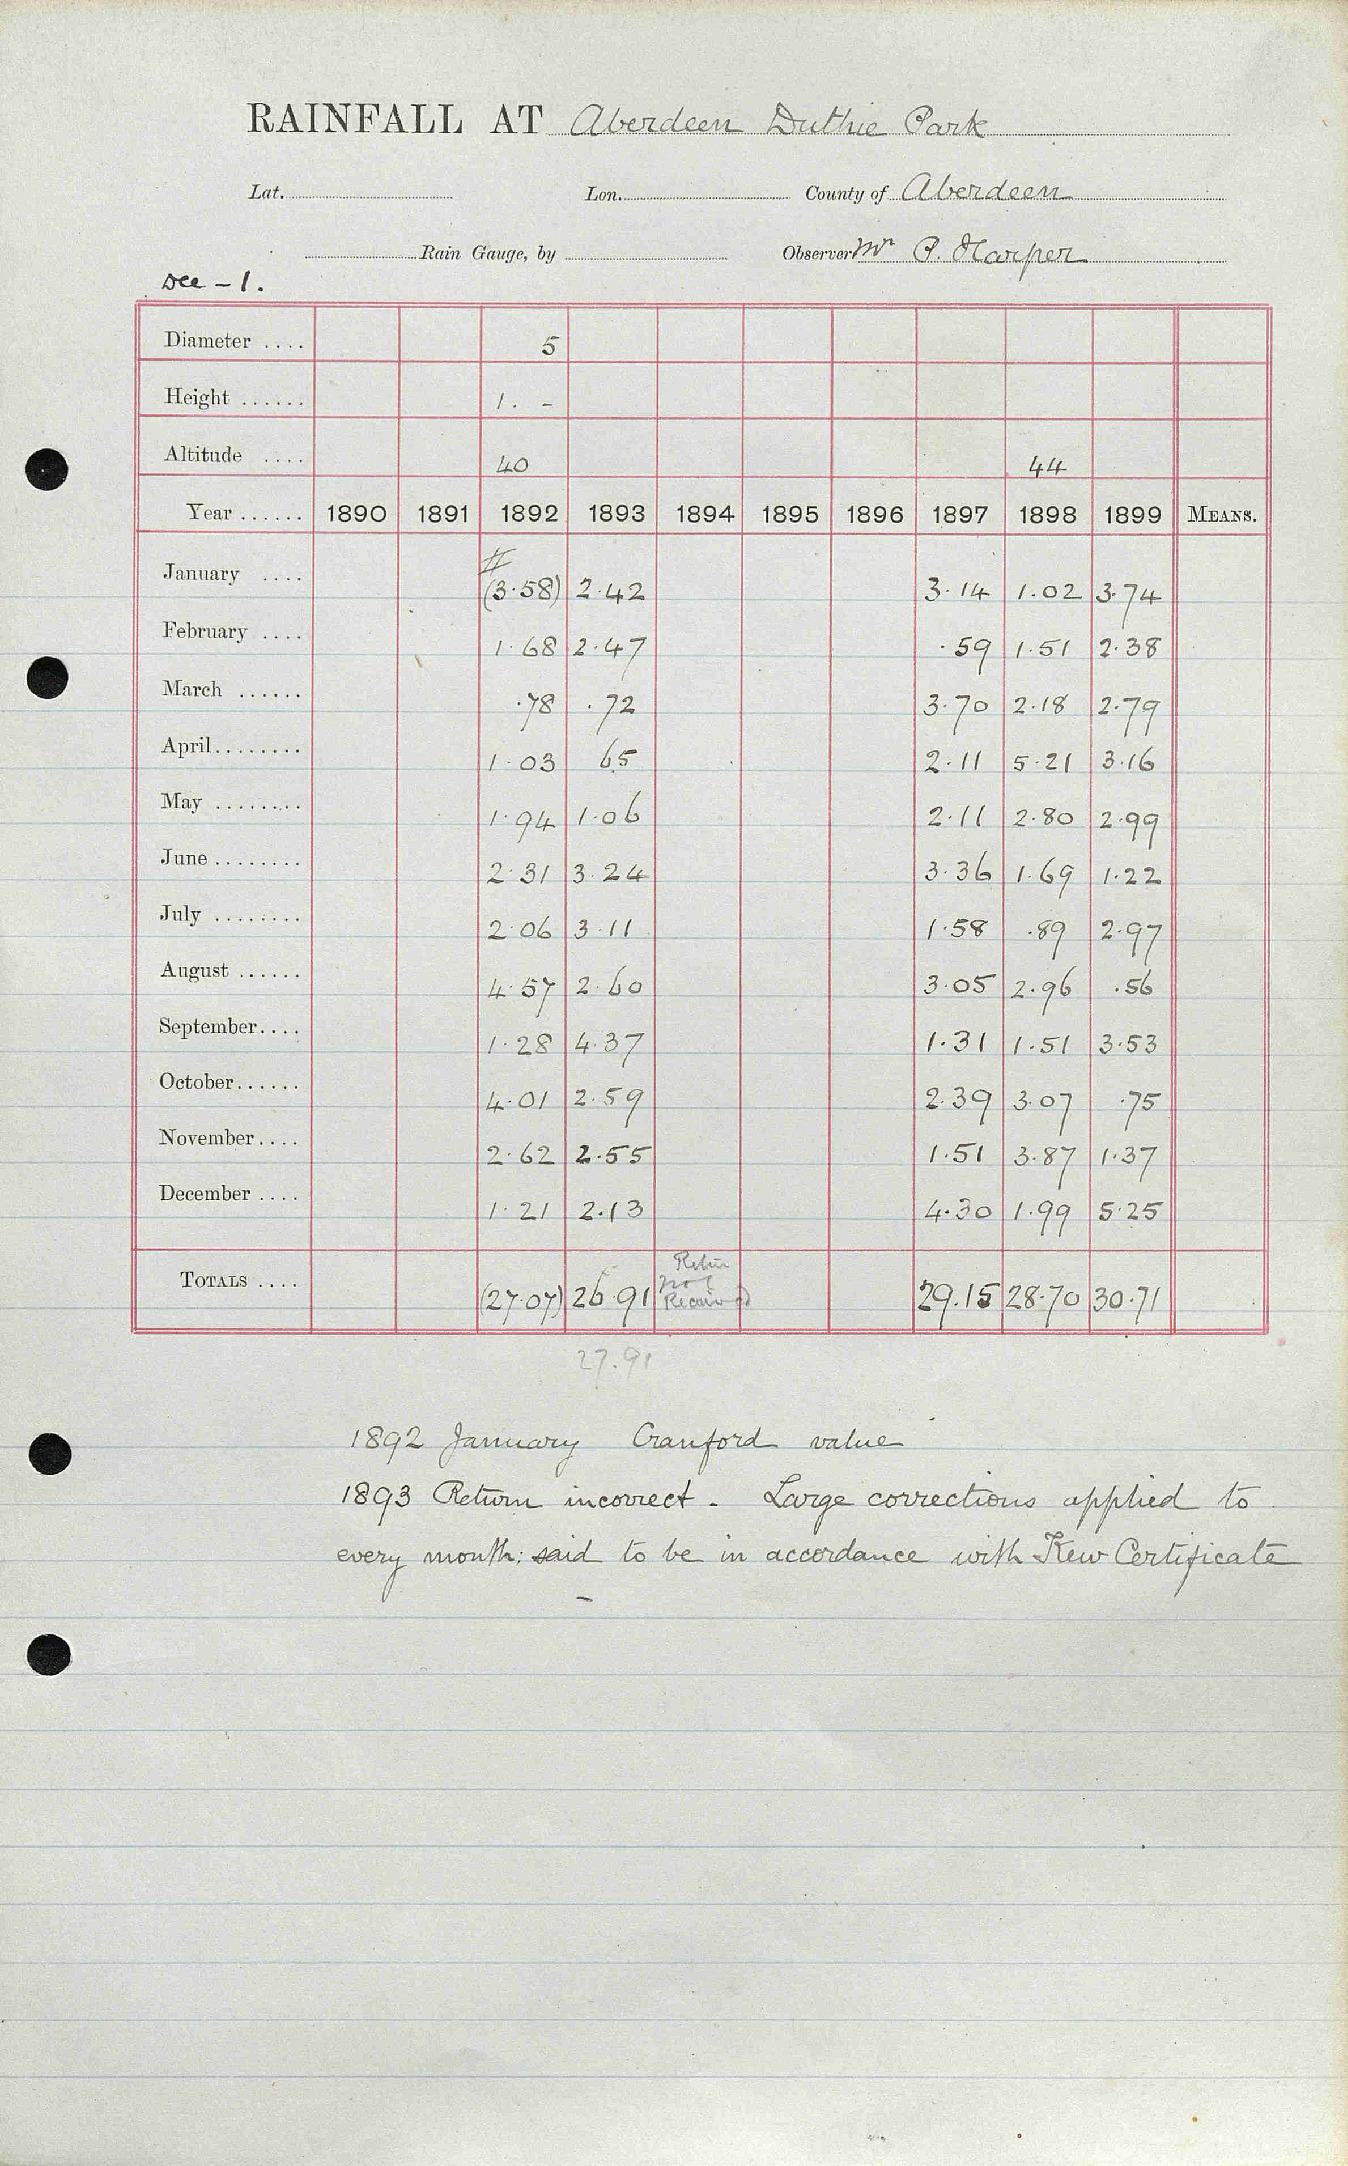 RAINFALL AT Aberdeen Duthie Park
Lat. Lon. County of Aberdeen
Rain Gauge, by Observer Mr P. Harper
Dec - 1.
Diameter .... 5
Height ...... 1. -
Altitude .... 40 44
Year ...... 1890 1891 1892 1893 1894 1895 1896 1897 1898 1899 MEANS.
January .... # (3.58) 2.42 3.14 1.02 3.74
February .... 1.68 2.47 .59 1.51 2.38
March ...... .78 .72 3.70 2.18 2.79
April........ 1.03 65 2.11 5.21 3.16
May ......... 1.94 1.06 2.11 2.80 2.99
June ........ 2.31 3.24 3.36 1.69 1.22
July ........ 2.06 3.11 1.58 .89 2.97
August ...... 4.57 2.60 3.05 2.96 .56
September.... 1.28 4.37 1.31 1.51 3.53
October...... 4.01 2.59 2.39 3.07 .75
November.... 2.62 2.55 1.51 3.87 1.37
December .... 1.21 2.13 4.30 1.99 5.25
TOTALS .... (27.07) 26.91 Return not Received 29.15 28.70 30.71
27.91
1892 January Cranford value
1893 Return incorrect - Large corrections applied to
every month; said to be in accordance with Kew Certificate